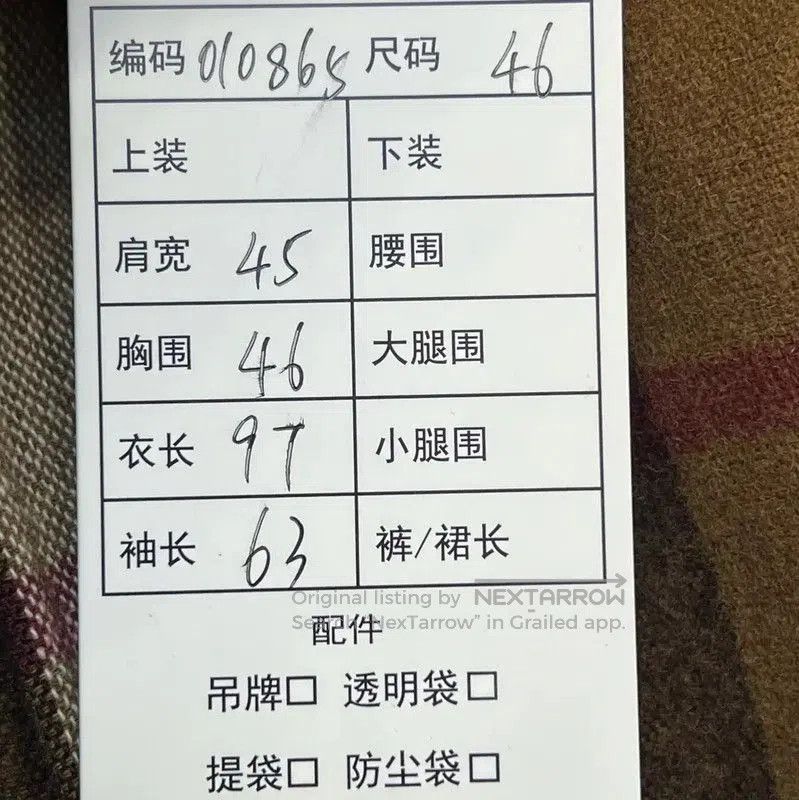 编码 010865 尺码 46
上装 下装
肩宽 45 腰围
胸围 46 大腿围
衣长 97 小腿围
袖长 63 裤/裙长
Original listing by NEXTARROW
Search "NexTarrow" in Grailed app.
配件
吊牌□ 透明袋□
提袋□ 防尘袋□